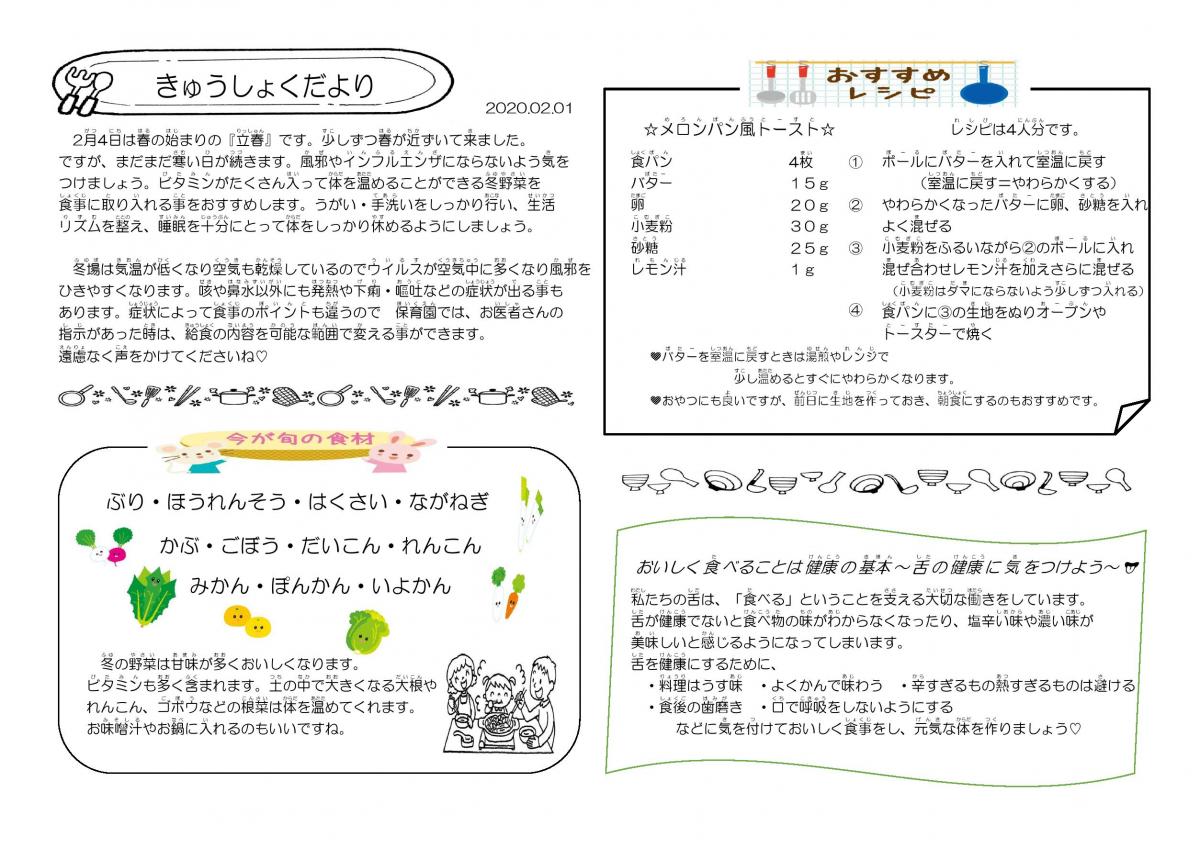 きゅうしょくだより
2020.02.01
2月4日は春の始まりの『立春』です。少しずつ春が近ずいて来ました。
ですが、まだまだ寒い日が続きます。風邪やインフルエンザにならないよう気を
つけましょう。ビタミンがたくさん入って体を温めることができる冬野菜を
食事に取り入れる事をおすすめします。うがい・手洗いをしっかり行い、生活
リズムを整え、睡眠を十分にとって体をしっかり休めるようにしましょう。
冬場は気温が低くなり空気も乾燥しているのでウイルスが空気中に多くなり風邪を
ひきやすくなります。咳や鼻水以外にも発熱や下痢・嘔吐などの症状が出る事も
あります。症状によって食事のポイントも違うので　保育園では、お医者さんの
指示があった時は、給食の内容を可能な範囲で変える事ができます。
遠慮なく声をかけてくださいね♡
今が旬の食材
ぶり・ほうれんそう・はくさい・ながねぎ
かぶ・ごぼう・だいこん・れんこん
みかん・ぽんかん・いよかん
冬の野菜は甘味が多くおいしくなります。
ビタミンも多く含まれます。土の中で大きくなる大根や
れんこん、ゴボウなどの根菜は体を温めてくれます。
お味噌汁やお鍋に入れるのもいいですね。
おすすめ
レシピ
☆メロンパン風トースト☆　レシピは4人分です。
食パン　4枚
バター　15g
卵　20g
小麦粉　30g
砂糖　25g
レモン汁　1g
①　ボールにバターを入れて室温に戻す
（室温に戻す＝やわらかくする）
②　やわらかくなったバターに卵、砂糖を入れ
よく混ぜる
③　小麦粉をふるいながら②のボールに入れ
混ぜ合わせレモン汁を加えさらに混ぜる
（小麦粉はダマにならないよう少しずつ入れる）
④　食パンに③の生地をぬりオーブンや
トースターで焼く
♥バターを室温に戻すときは湯煎やレンジで
少し温めるとすぐにやわらかくなります。
♥おやつにも良いですが、前日に生地を作っておき、朝食にするのもおすすめです。
おいしく食べることは健康の基本～舌の健康に気をつけよう～
私たちの舌は、「食べる」ということを支える大切な働きをしています。
舌が健康でないと食べ物の味がわからなくなったり、塩辛い味や濃い味が
美味しいと感じるようになってしまいます。
舌を健康にするために、
・料理はうす味　・よくかんで味わう　・辛すぎるもの熱すぎるものは避ける
・食後の歯磨き　・口で呼吸をしないようにする
などに気を付けておいしく食事をし、元気な体を作りましょう♡